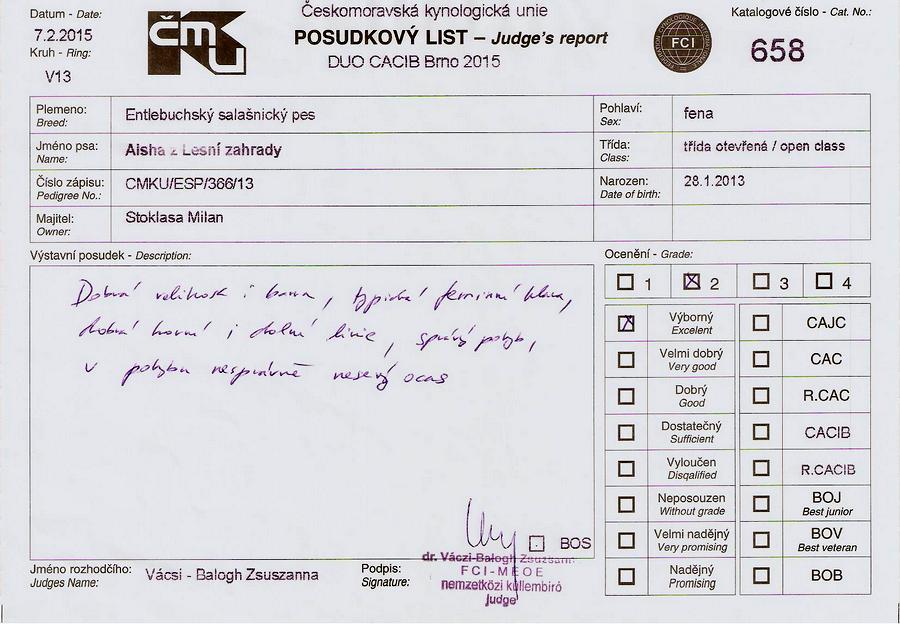 Datum - Date:
7.2.2015
Kruh - Ring:
V13
ČMKU
Českomoravská kynologická unie
POSUDKOVÝ LIST – Judge's report
DUO CACIB Brno 2015
FCI
Katalogové číslo - Cat. No.:
658
Plemeno:
Breed:
Entlebuchský salašnický pes
Pohlaví:
Sex:
fena
Jméno psa:
Name:
Aisha z Lesní zahrady
Třída:
Class:
třída otevřená / open class
Číslo zápisu:
Pedigree No.:
CMKU/ESP/366/13
Narozen:
Date of birth:
28.1.2013
Majitel:
Owner:
Stoklasa Milan
Výstavní posudek - Description:
Dobrá velikost i barva, typická feminní hlava,
dobrá horní i dolní linie, správný pohyb,
v pohybu nesprávně nesený ocas
Ocenění - Grade:
1 2 3 4
Výborný
Excelent
CAJC
Velmi dobrý
Very good
CAC
Dobrý
Good
R.CAC
Dostatečný
Sufficient
CACIB
Vyloučen
Disqalified
R.CACIB
Neposouzen
Without grade
BOJ
Best junior
Velmi nadějný
Very promising
BOV
Best veteran
Nadějný
Promising
BOB
BOS
Jméno rozhodčího:
Judges Name:
Vácsi - Balogh Zsuszanna
Podpis:
Signature:
dr. Váczi-Balogh
FCI-MEOE
nemzetközi küllembíró
judge